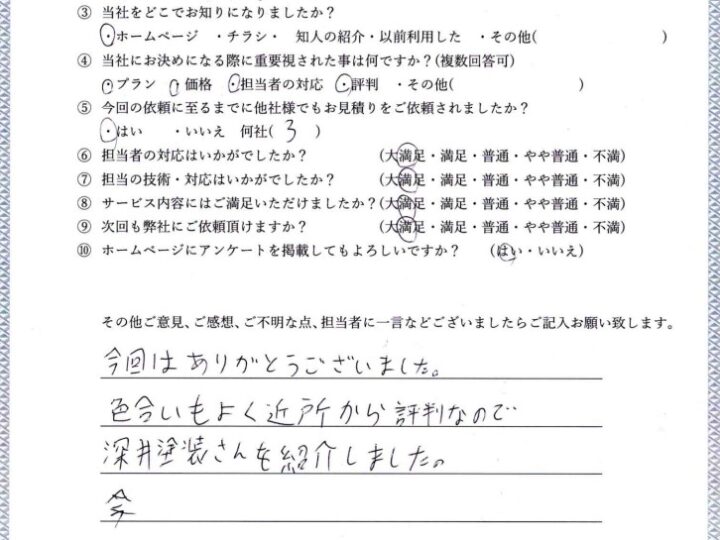 ③ 当社をどこでお知りになりましたか?
・ホームページ ・チラシ・ 知人の紹介・以前利用した ・その他( )
④ 当社にお決めになる際に重要視された事は何ですか?(複数回答可)
・プラン ・価格 ・担当者の対応 ・評判 ・その他( )
⑤ 今回の依頼に至るまでに他社様でもお見積りをご依頼されましたか?
・はい ・いいえ 何社( 3 )
⑥ 担当者の対応はいかがでしたか? (大満足・満足・普通・やや普通・不満)
⑦ 担当の技術・対応はいかがでしたか? (大満足・満足・普通・やや普通・不満)
⑧ サービス内容にはご満足いただけましたか?(大満足・満足・普通・やや普通・不満)
⑨ 次回も弊社にご依頼頂けますか? (大満足・満足・普通・やや普通・不満)
⑩ ホームページにアンケートを掲載してもよろしいですか? (はい・いいえ)
その他ご意見、ご感想、ご不明な点、担当者に一言などございましたらご記入お願い致します。
今回はありがとうございました。
色合いもよく近所から評判なので
深井塗装さんを紹介しました。